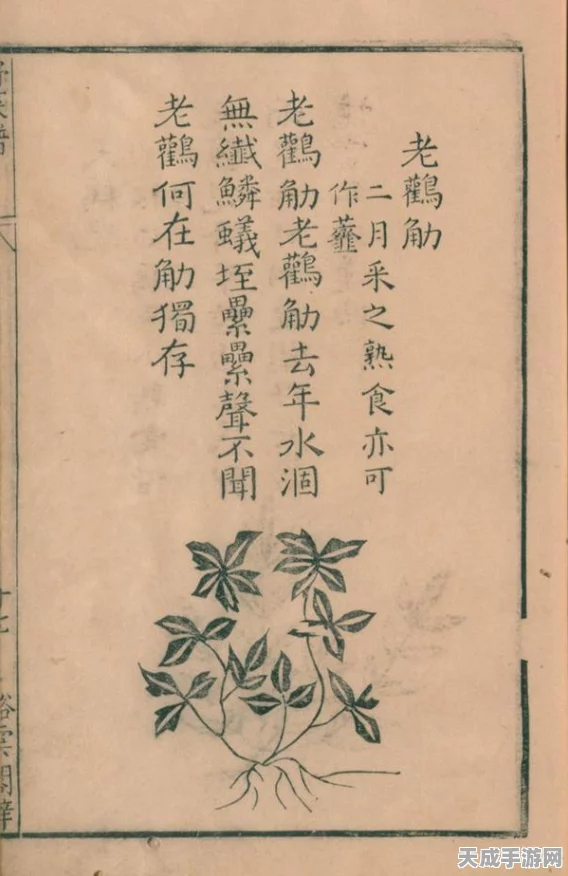 老鸛觔
二月采之熟食亦可
作虀
老鸛觔老鸛觔去年水涸
無纖鱗蟻垤纍纍聲不聞
老鸛何在觔獨存
天成手游网